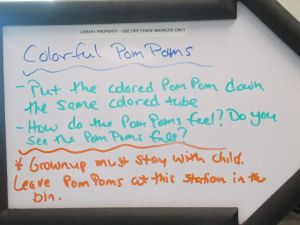 LIBRARY PROPERTY - USE DRY ERASE MARKERS ONLY
Colorful Pom Poms
- Put the colored Pom Pom down
the same colored tube
- How do the Pom Poms feel? Do you
see the Pom Poms fall?
* Grownup must stay with child.
Leave Pom Poms at this station in the
bin.